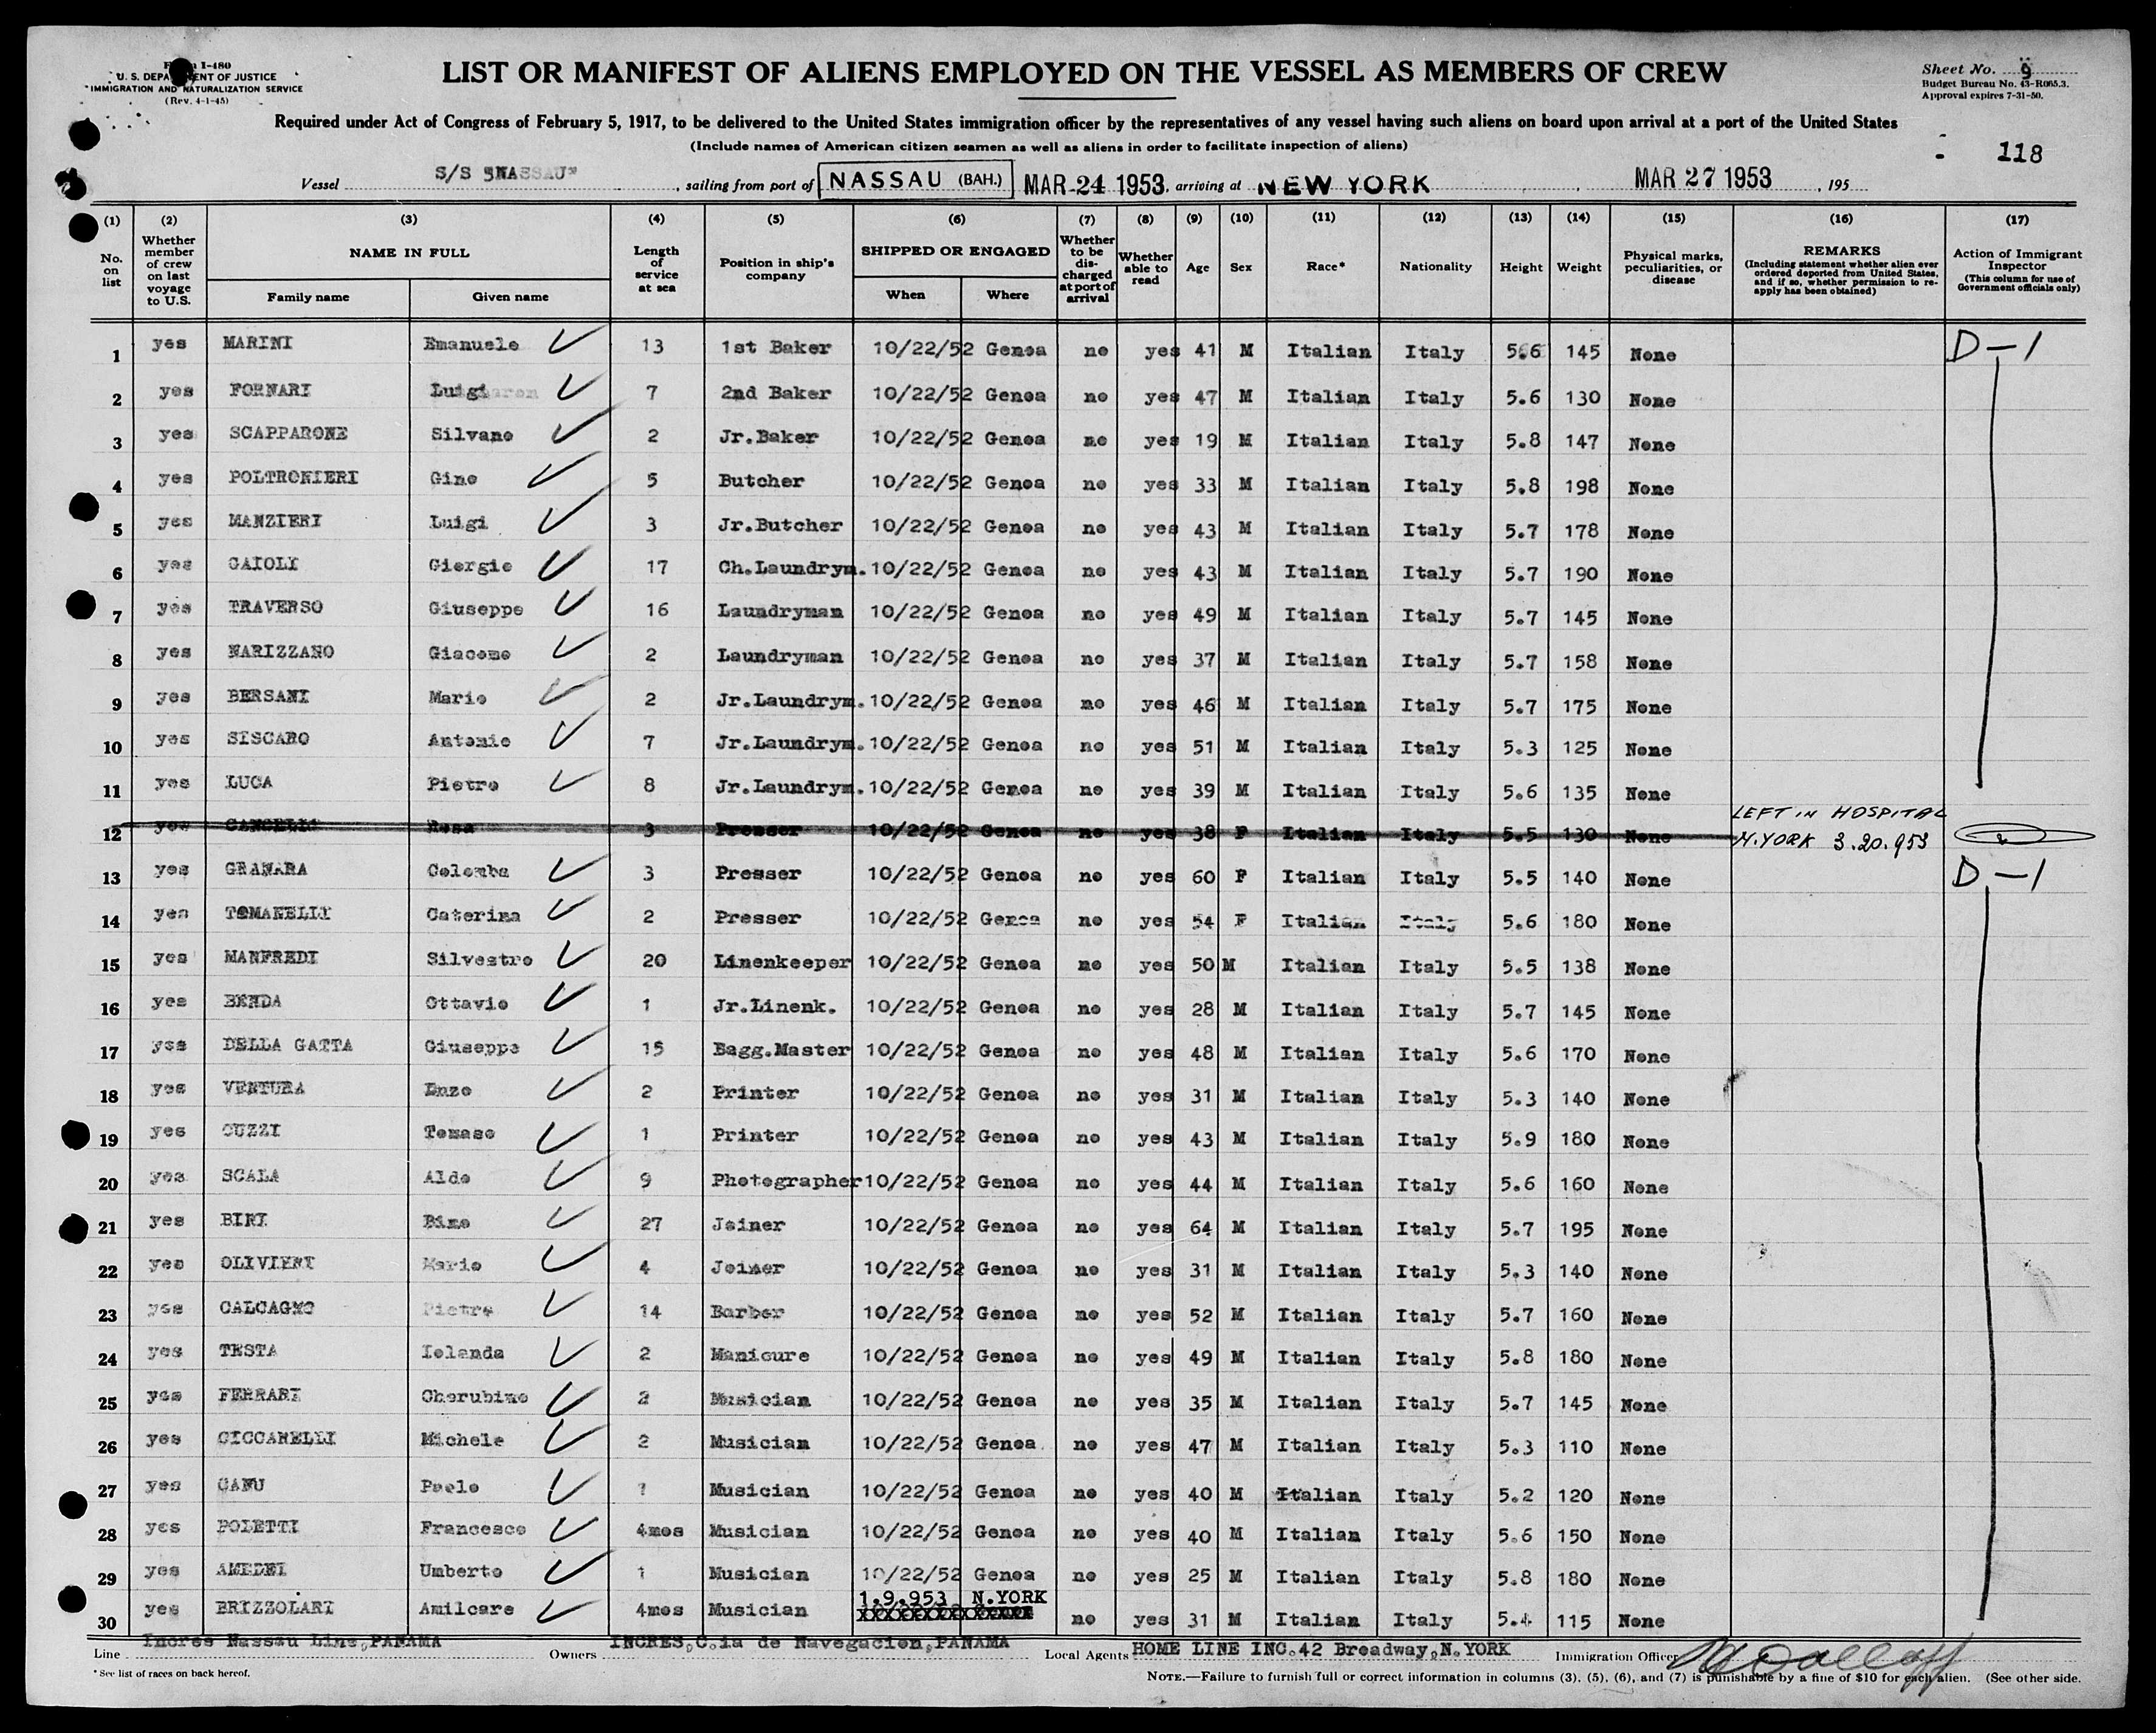 Form I-480
U. S. DEPARTMENT OF JUSTICE
IMMIGRATION AND NATURALIZATION SERVICE
(Rev. 4-1-45)
LIST OR MANIFEST OF ALIENS EMPLOYED ON THE VESSEL AS MEMBERS OF CREW
Sheet No. 9
Budget Bureau No. 43-R065.3.
Approval expires 7-31-50.
Required under Act of Congress of February 5, 1917, to be delivered to the United States immigration officer by the representatives of any vessel having such aliens on board upon arrival at a port of the United States
(Include names of American citizen seamen as well as aliens in order to facilitate inspection of aliens)
118
Vessel S/S "NASSAU" , sailing from port of NASSAU (BAH.) MAR 24 1953, arriving at NEW YORK , MAR 27 1953 , 195
(1) (2) (3) (4) (5) (6) (7) (8) (9) (10) (11) (12) (13) (14) (15) (16) (17)
No. on list
Whether member of crew on last voyage to U.S.
NAME IN FULL
Family name
Given name
Length of service at sea
Position in ship's company
SHIPPED OR ENGAGED
When
Where
Whether to be discharged at port of arrival
Whether able to read
Age
Sex
Race*
Nationality
Height
Weight
Physical marks, peculiarities, or disease
REMARKS
(Including statement whether alien ever ordered deported from United States, and if so, whether permission to reapply has been obtained)
Action of Immigrant Inspector
(This column for use of Government officials only)
1 yes MARINI Emanuele 13 1st Baker 10/22/52 Genoa no yes 41 M Italian Italy 5.6 145 None D-1
2 yes FORNARI Luigi 7 2nd Baker 10/22/52 Genoa no yes 47 M Italian Italy 5.6 130 None
3 yes SCAPPARONE Silvano 2 Jr.Baker 10/22/52 Genoa no yes 19 M Italian Italy 5.8 147 None
4 yes POLTRONIERI Gino 5 Butcher 10/22/52 Genoa no yes 33 M Italian Italy 5.8 198 None
5 yes MANZIERI Luigi 3 Jr.Butcher 10/22/52 Genoa no yes 43 M Italian Italy 5.7 178 None
6 yes CAIOLI Giorgio 17 Ch.Laundrym. 10/22/52 Genoa no yes 43 M Italian Italy 5.7 190 None
7 yes TRAVERSO Giuseppe 16 Laundryman 10/22/52 Genoa no yes 49 M Italian Italy 5.7 145 None
8 yes NARIZZANO Giacomo 2 Laundryman 10/22/52 Genoa no yes 37 M Italian Italy 5.7 158 None
9 yes BERSANI Mario 2 Jr.Laundrym. 10/22/52 Genoa no yes 46 M Italian Italy 5.7 175 None
10 yes SISCARO Antonio 7 Jr.Laundrym. 10/22/52 Genoa no yes 51 M Italian Italy 5.3 125 None
11 yes LUCA Pietro 8 Jr.Laundrym. 10/22/52 Genoa no yes 39 M Italian Italy 5.6 135 None
12 yes CANCELIC Rosa 3 Presser 10/22/52 Genoa no yes 38 F Italian Italy 5.5 130 None LEFT IN HOSPITAL N.YORK 3.20.953
13 yes GRANARA Colomba 3 Presser 10/22/52 Genoa no yes 60 F Italian Italy 5.5 140 None D-1
14 yes TOMANELLI Caterina 2 Presser 10/22/52 Genoa no yes 54 F Italian Italy 5.6 180 None
15 yes MANFREDI Silvestro 20 Linenkeeper 10/22/52 Genoa no yes 50 M Italian Italy 5.5 138 None
16 yes BENDA Ottavio 1 Jr.Linenk. 10/22/52 Genoa no yes 28 M Italian Italy 5.7 145 None
17 yes DELLA GATTA Giuseppe 15 Bagg.Master 10/22/52 Genoa no yes 48 M Italian Italy 5.6 170 None
18 yes VENTURA Enzo 2 Printer 10/22/52 Genoa no yes 31 M Italian Italy 5.3 140 None
19 yes CUZZI Tomaso 1 Printer 10/22/52 Genoa no yes 43 M Italian Italy 5.9 180 None
20 yes SCALA Aldo 9 Photographer 10/22/52 Genoa no yes 44 M Italian Italy 5.6 160 None
21 yes BINI Bino 27 Joiner 10/22/52 Genoa no yes 64 M Italian Italy 5.7 195 None
22 yes OLIVIERI Mario 4 Joiner 10/22/52 Genoa no yes 31 M Italian Italy 5.3 140 None
23 yes CALCAGNO Pietro 14 Barber 10/22/52 Genoa no yes 52 M Italian Italy 5.7 160 None
24 yes TESTA Iolanda 2 Manicure 10/22/52 Genoa no yes 49 M Italian Italy 5.8 180 None
25 yes FERRARI Cherubino 2 Musician 10/22/52 Genoa no yes 35 M Italian Italy 5.7 145 None
26 yes CICCARELLI Michele 2 Musician 10/22/52 Genoa no yes 47 M Italian Italy 5.3 110 None
27 yes CANU Paolo 1 Musician 10/22/52 Genoa no yes 40 M Italian Italy 5.2 120 None
28 yes POLETTI Francesco 4mos Musician 10/22/52 Genoa no yes 40 M Italian Italy 5.6 150 None
29 yes AMEDEI Umberto 1 Musician 10/22/52 Genoa no yes 25 M Italian Italy 5.8 180 None
30 yes BRIZZOLARI Amilcare 4mos Musician 1.9.953 N.YORK no yes 31 M Italian Italy 5.4 115 None
Line Incres Nassau Line,PANAMA Owners INCRES,C.ia de Navegacion,PANAMA Local Agents HOME LINE INC.42 Breadway,N.YORK Immigration Officer
* See list of races on back hereof.
NOTE.—Failure to furnish full or correct information in columns (3), (5), (6), and (7) is punishable by a fine of $10 for each alien. (See other side.